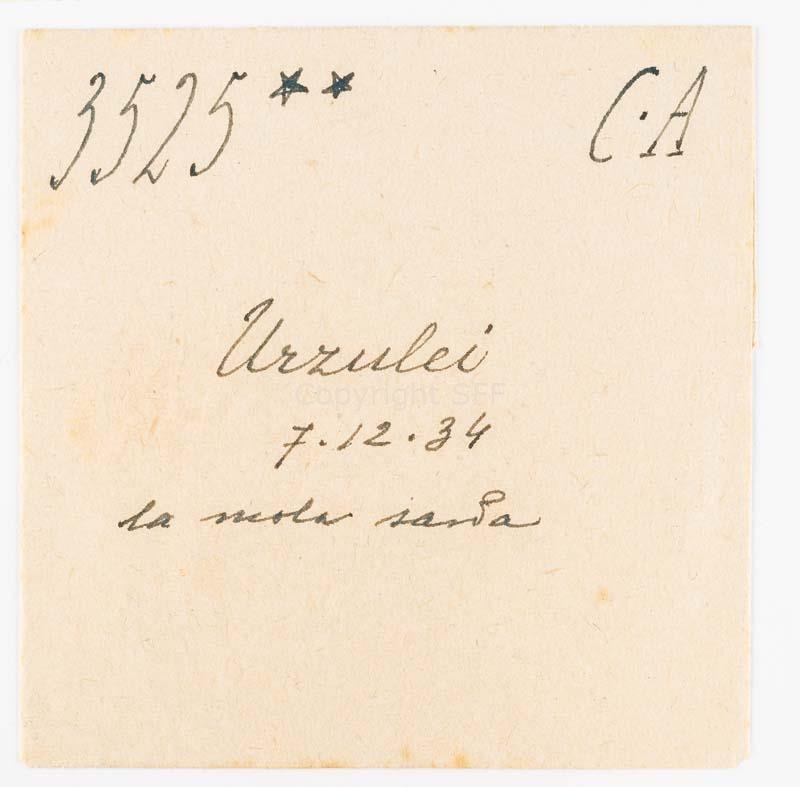 3525** C.A
Urzulei
Copyright SFF
7.12.34
la mola sarda